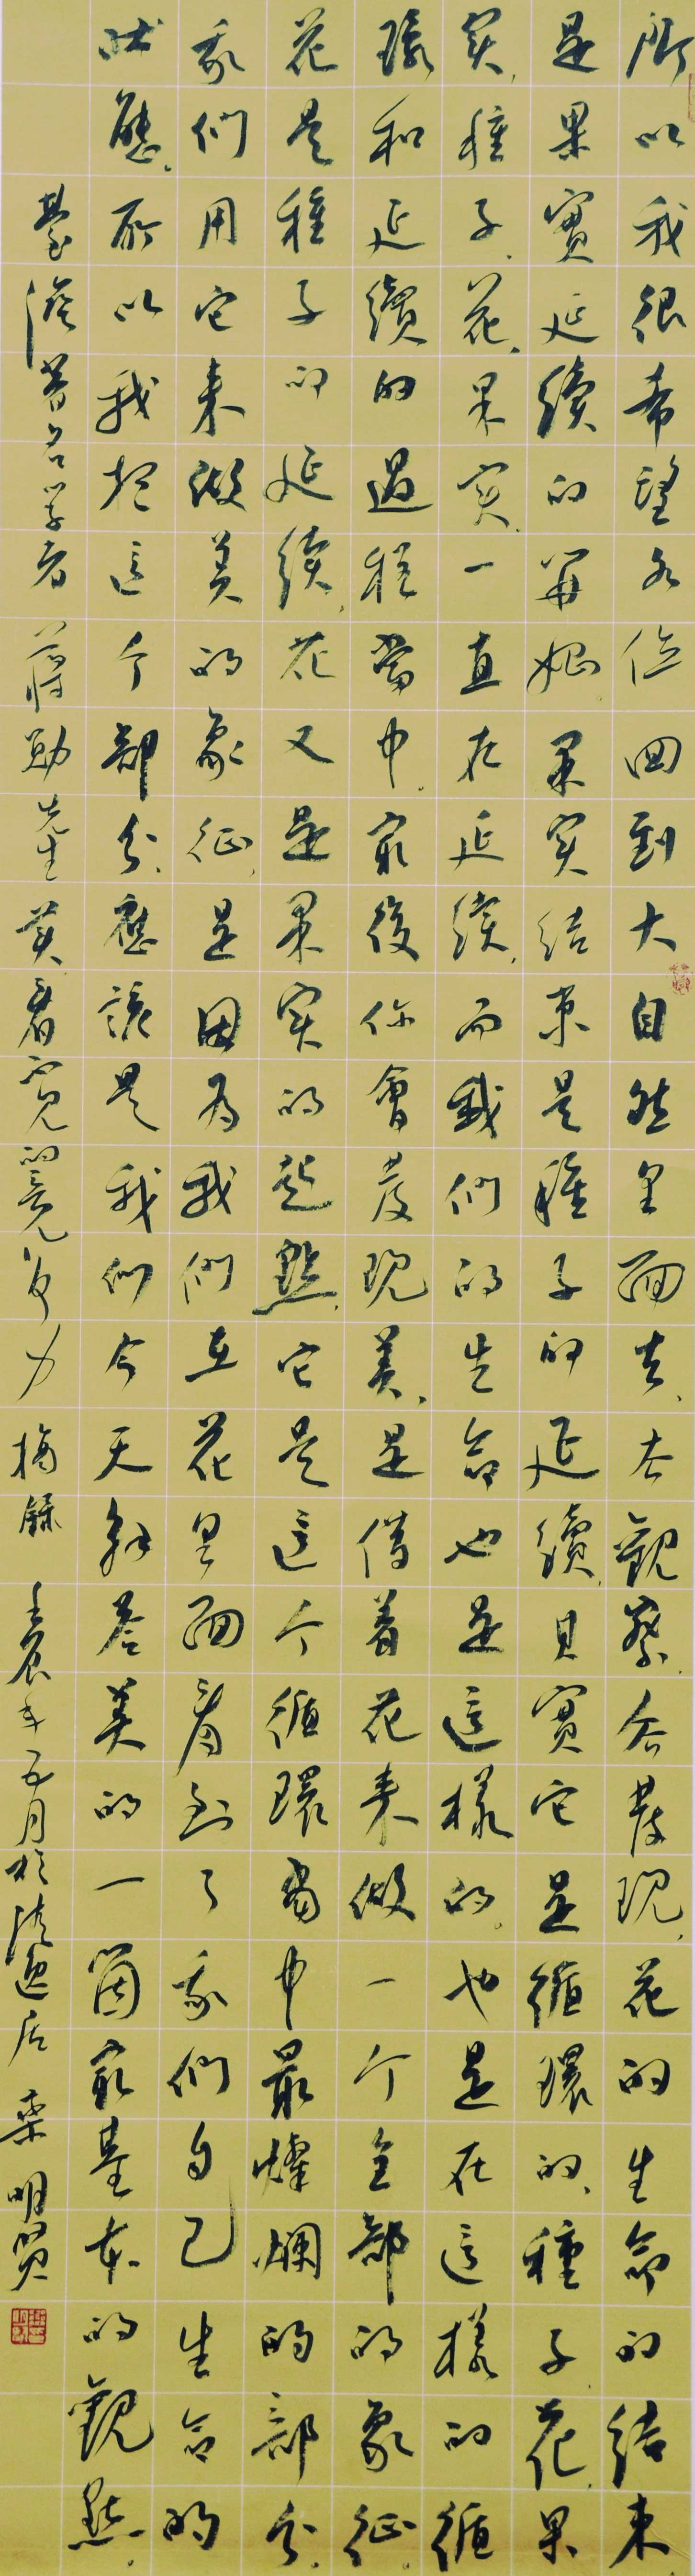 所以我很希望各位回到大自然里面去、去觀察、会發現、花的生命的结束
是果實延續的開始、果实结束是種子的延續、其實它是循環的、種子、花、果
实、種子、花、果实、一直在延续、而我们的生命也是這樣的。也是在這樣的循
環和延續的過程當中。最後你會發現美、是借着花来做一个全部的象征。
花是種子的延续、花又是果实的起點、它是這个循環當中最燦爛的部分、
我们用它来做美的象征、是因为我们在花里面看到了我们自己生命的
状態。所以我想這个部分、應該是我们今天解答美的一個最基本的觀點。
臺湾著名学者蒋勋先生 美看不見的競争力 摘録 年五月於 居 明贤